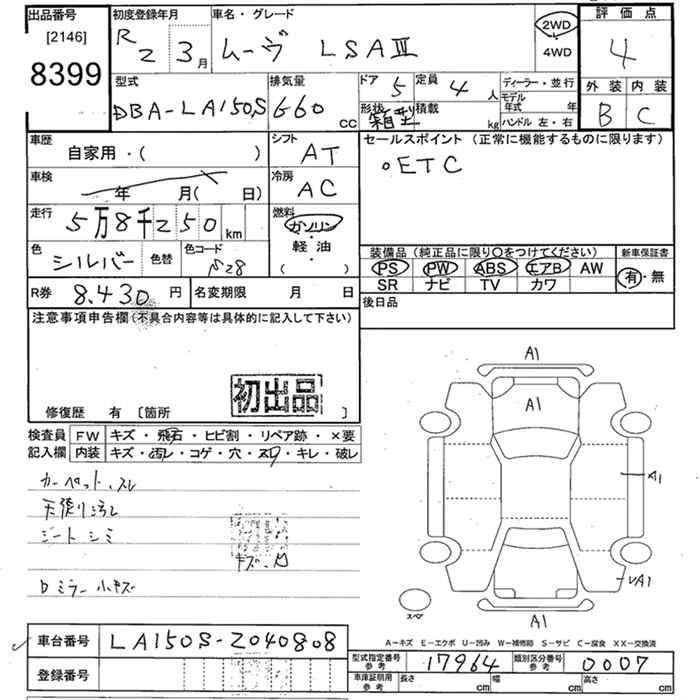 出品番号 [2146] 8399
初度登録年月 R2 3月
車名・グレード ムーヴ LSAⅢ
2WD 4WD
評価点 4
外装 B 内装 C
型式 DBA-LA150S
排気量 660 CC
ドア 5 定員 4人
形状 箱型 積載 kg
ディーラー・並行
モデル年式 年
ハンドル 左・右
車歴 自家用・( )
シフト AT
セールスポイント (正常に機能するものに限ります)
。ETC
車検 年 月( 日)
冷房 AC
走行 5万8千250km
燃料 ガソリン・軽油・( )
色 シルバー 色替 色コード S28
装備品 (純正品に限り〇をつけてください) 新車保証書
PS PW ABS エアB AW 有・無
SR ナビ TV カワ
R券 8.430円 名変期限 月 日
後日品
注意事項申告欄 (不具合内容等は具体的に記入して下さい)
初出品
修復歴 有 [箇所 ]
検査員 FW キズ・飛石・ヒビ割・リペア跡・×要
記入欄 内装 キズ・汚レ・コゲ・穴・スレ・キレ・破レ
カーペット、スレ
天張り汚レ
シートシミ
キズ、
Dミラー小キズ
A1
A1
A1
VA1
A1
スペア
A-キズ E-エクボ U-凹み W-補修跡 S-サビ C-腐食 XX-交換済
車台番号 LA150S-2040808
型式指定番号 参考 17964 類別区分番号 参考 0007
登録番号
車庫証明用 参考 長さ cm 幅 cm 高さ cm